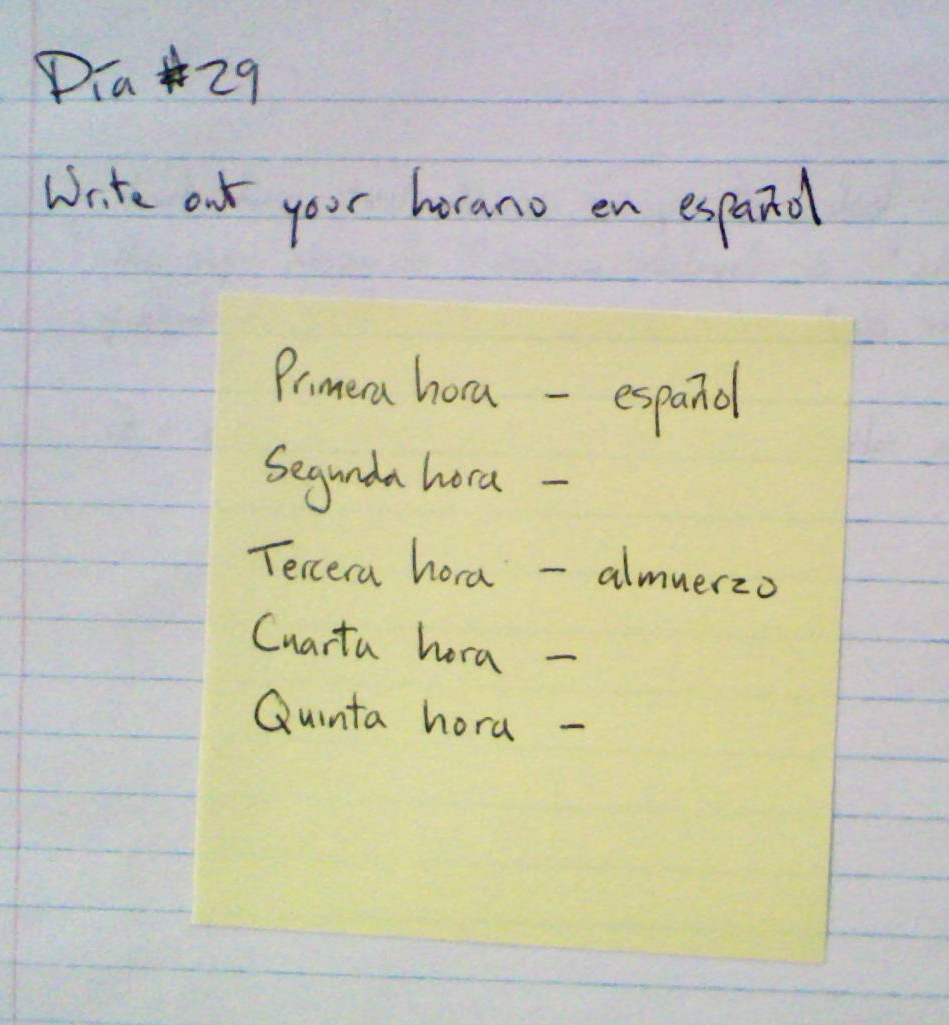 Día #29
Write out your horario en español
Primera hora - español
Segunda hora -
Tercera hora - almuerzo
Cuarta hora -
Quinta hora -